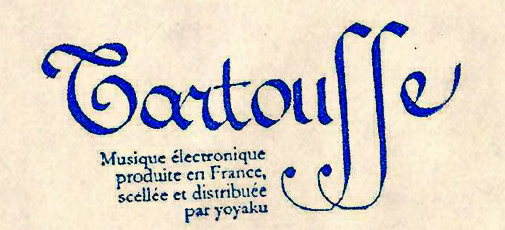 Tartousse
Musique électronique
produite en France,
scellée et distribuée
par yoyaku